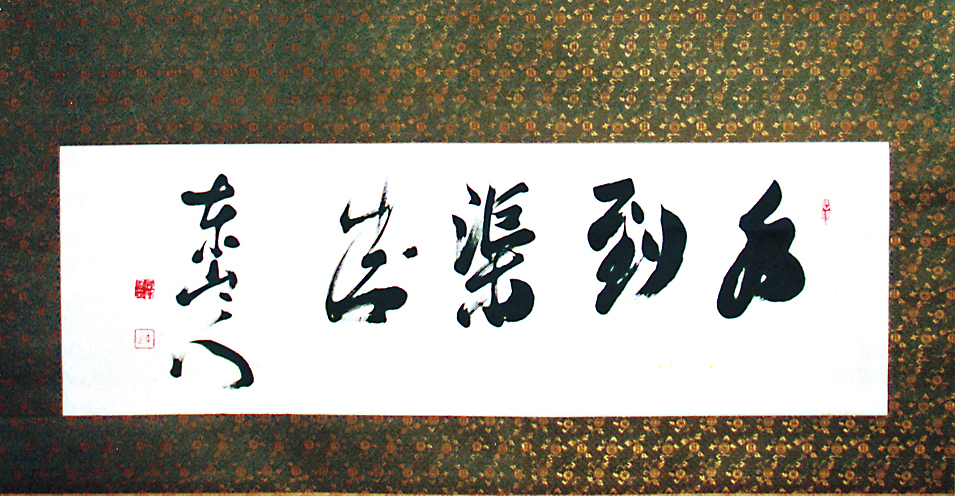 水到渠成
東山